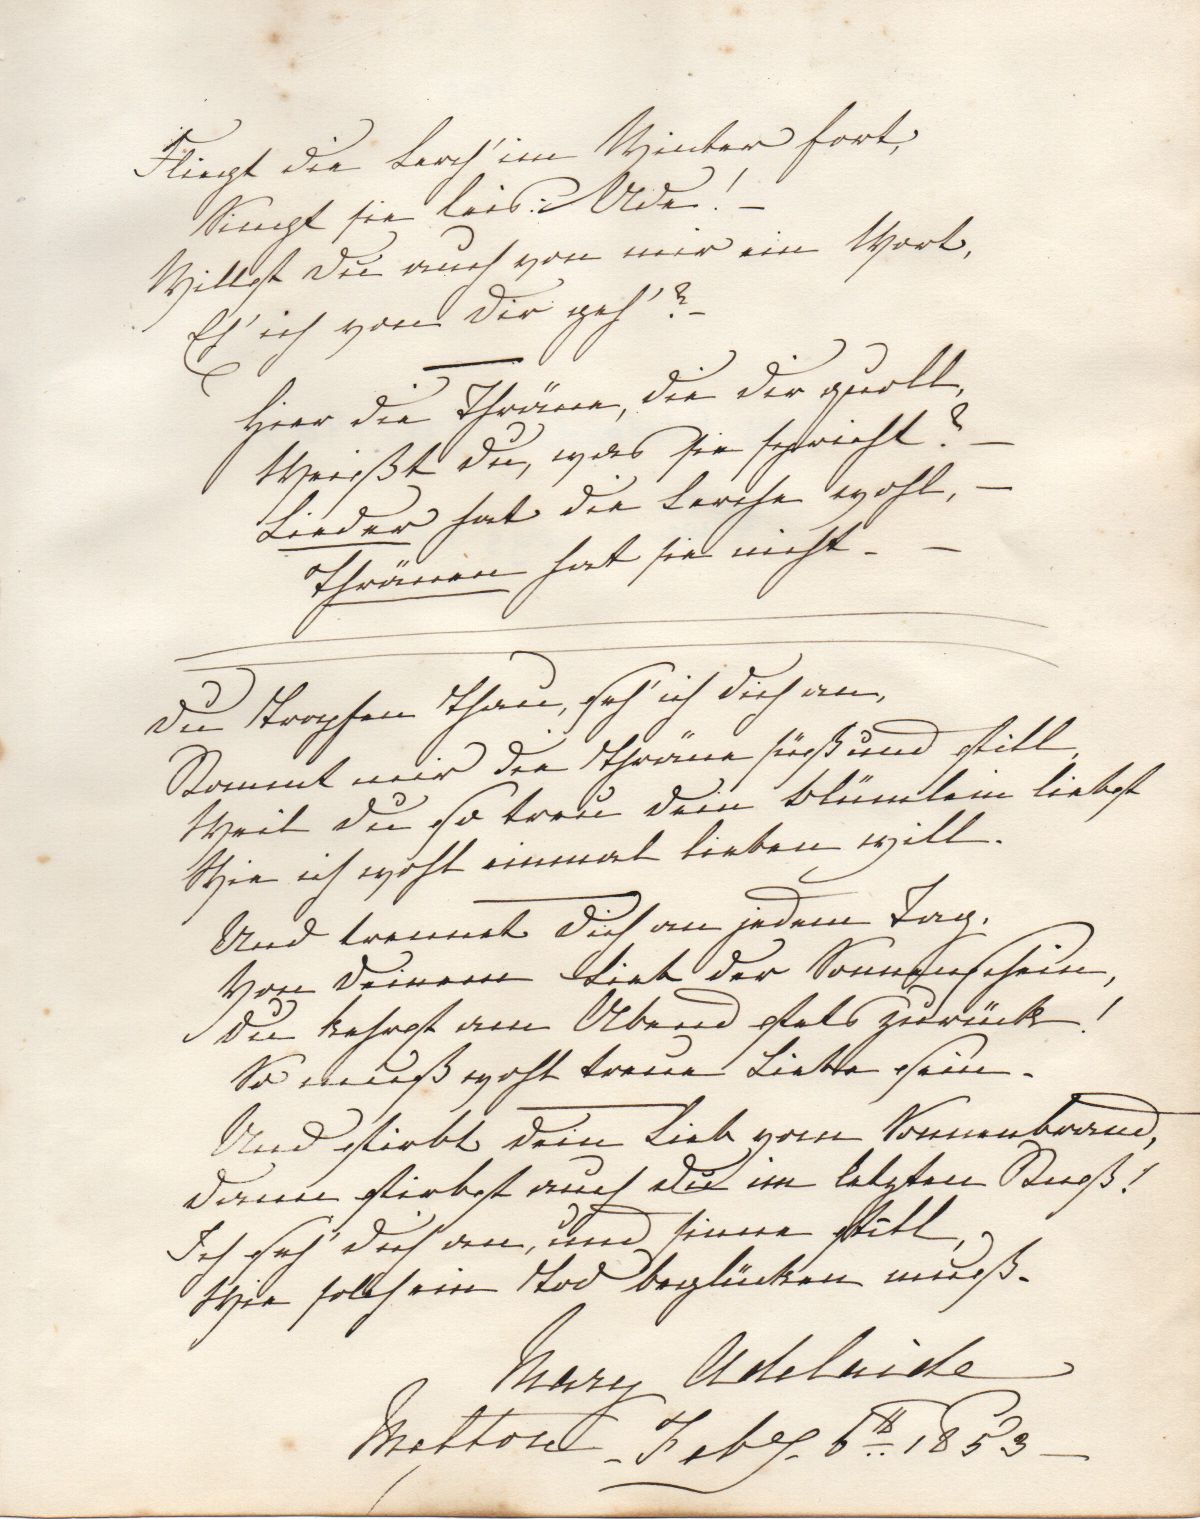 Fliegt die Lerch' im Winter fort,
Singt sie leis: Ade! –
Willst Du auch von mir ein Wort,
Eh' ich von Dir geh'? –
Hier die Thräne, die dir quoll,
Weißt du, was sie spricht? –
Lieder hat die Lerche wohl, –
Thränen hat sie nicht – –
Du Tropfen Thau, seh' ich dich an,
Kommt mir die Thräne süß und still,
Weil du so treu dein Blümlein liebst
Wie ich wohl einmal lieben will.
Und trennet Dich an jedem Tag.
Von Deinem Lieb der Sonnenschein,
Du kehrst am Abend stets zurück!
So muß wohl treue Liebe sein.
Und stirbt dein Lieb vom Sonnenbrand,
dann stirbst auch du im letzten Kuß!
Ich seh' dich an, und sinne still,
Wie solch ein Tod beglücken muß.
Mary Adelaide
Melton – Feby. 6th 1853 –